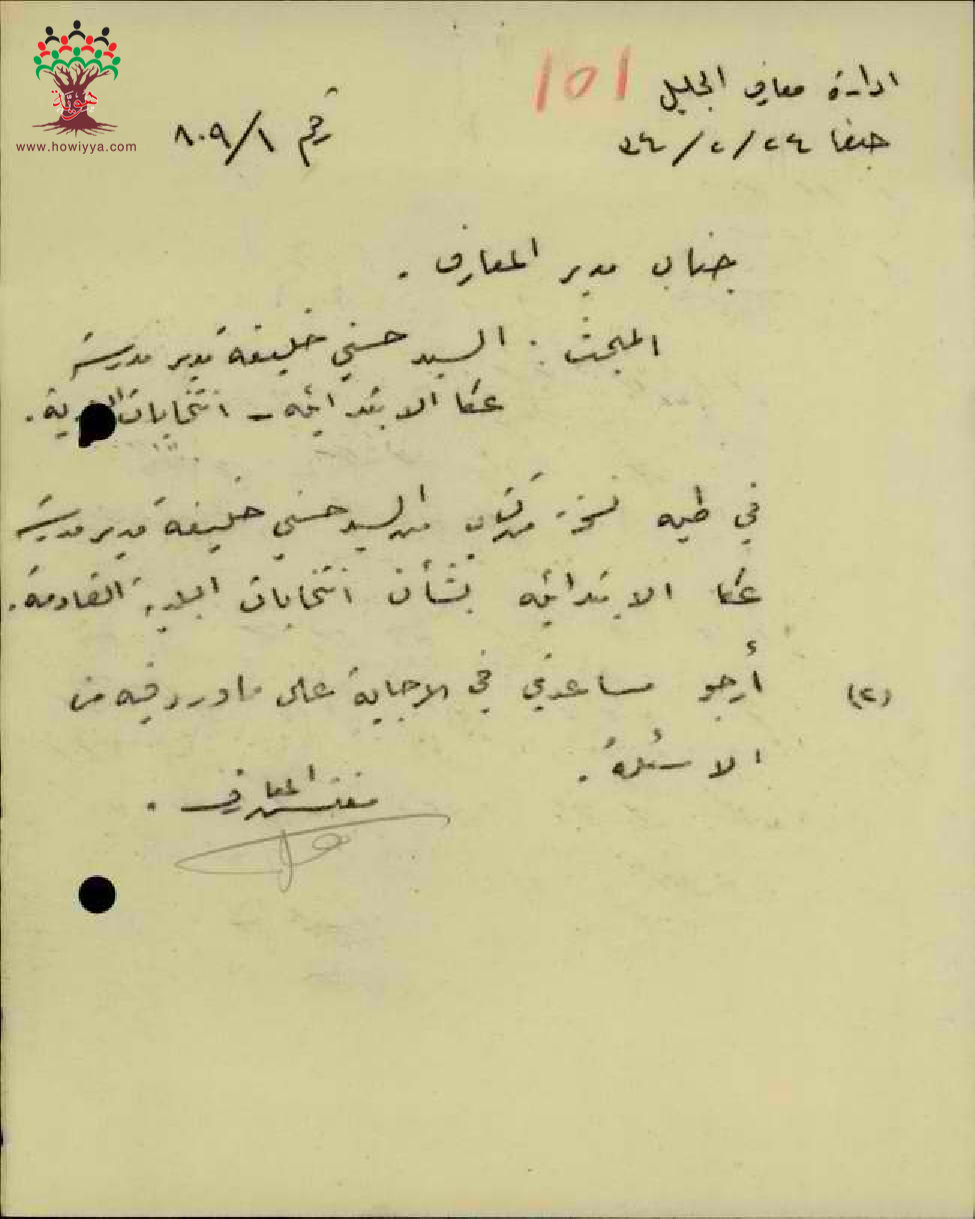 ادارة معارف الجليل
151
حيفا ٢٤/٢/٣٤
رقم ٨٠٩/١
هوية
www.howiyya.com
جناب مدير المعارف .
المبحث : السيد حسني خليفة مدير مدرسة
عكا الابتدائية - انتخابات البلدية .
في طيه نسخة من كتاب من السيد حسني خليفة مدير مدرسة
عكا الابتدائية بشأن انتخابات البلدية القادمة .
(٢) أرجو مساعدتي في الاجابة على ما ورد فيه من
الاسئلة .
مفتش المعارف .